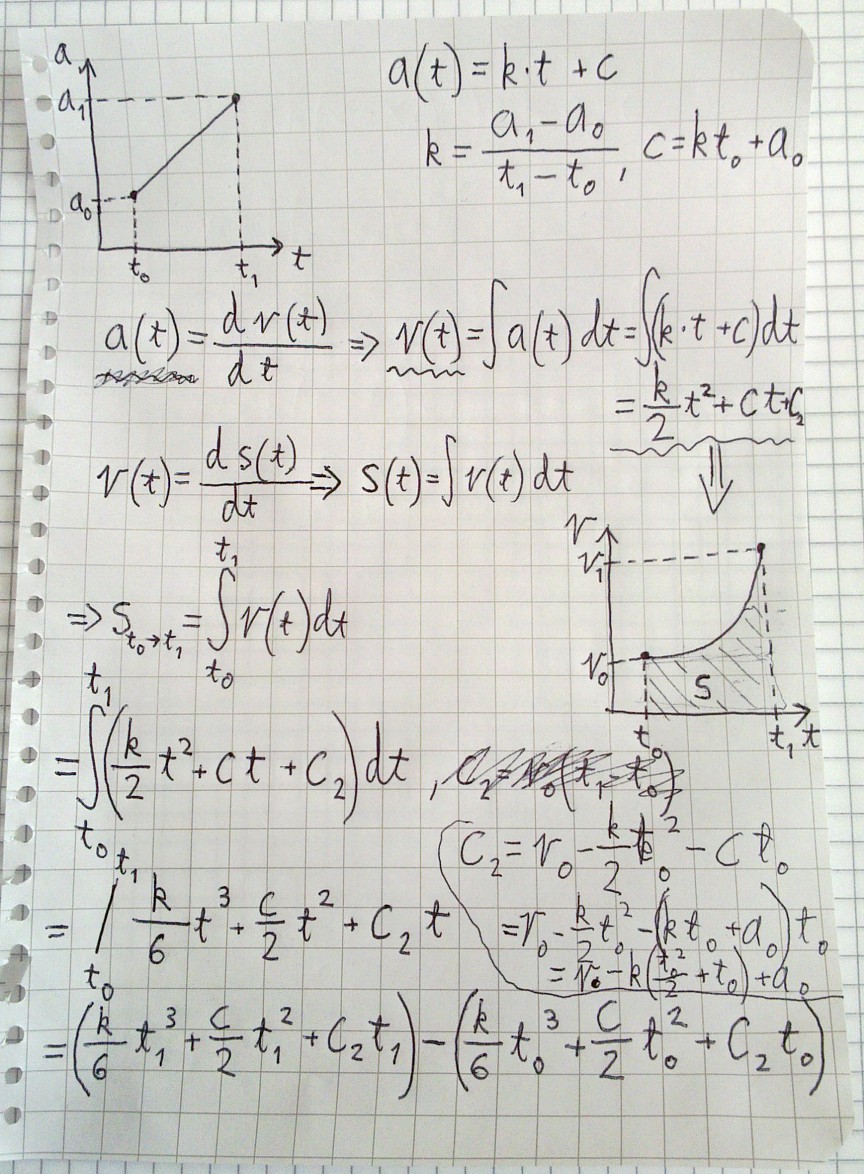 a
a₁
a₀
t₀ t₁ t
a(t) = k·t + c
k = (a₁ − a₀)/(t₁ − t₀), c = kt₀ + a₀
a(t) = d v(t)/dt ⇒ v(t) = ∫a(t) dt = ∫(k·t + c)dt
= k/2 t² + ct + C₂
v(t) = d s(t)/dt ⇒ s(t) = ∫v(t) dt
⇓
v
v₁
v₀
S
t₀ t₁ t
⇒ S_{t₀→t₁} = ∫_{t₀}^{t₁} v(t)dt
= ∫_{t₀}^{t₁} (k/2 t² + ct + C₂) dt ,
C₂ = v₀ − k/2 t₀² − c t₀
= v₀ − k/2 t₀² − (kt₀ + a₀) t₀
= v₀ − k(t₀²/2 + t₀) + a₀
= /_{t₀}^{t₁} k/6 t³ + c/2 t² + C₂ t
= (k/6 t₁³ + c/2 t₁² + C₂t₁) − (k/6 t₀³ + c/2 t₀² + C₂ t₀)